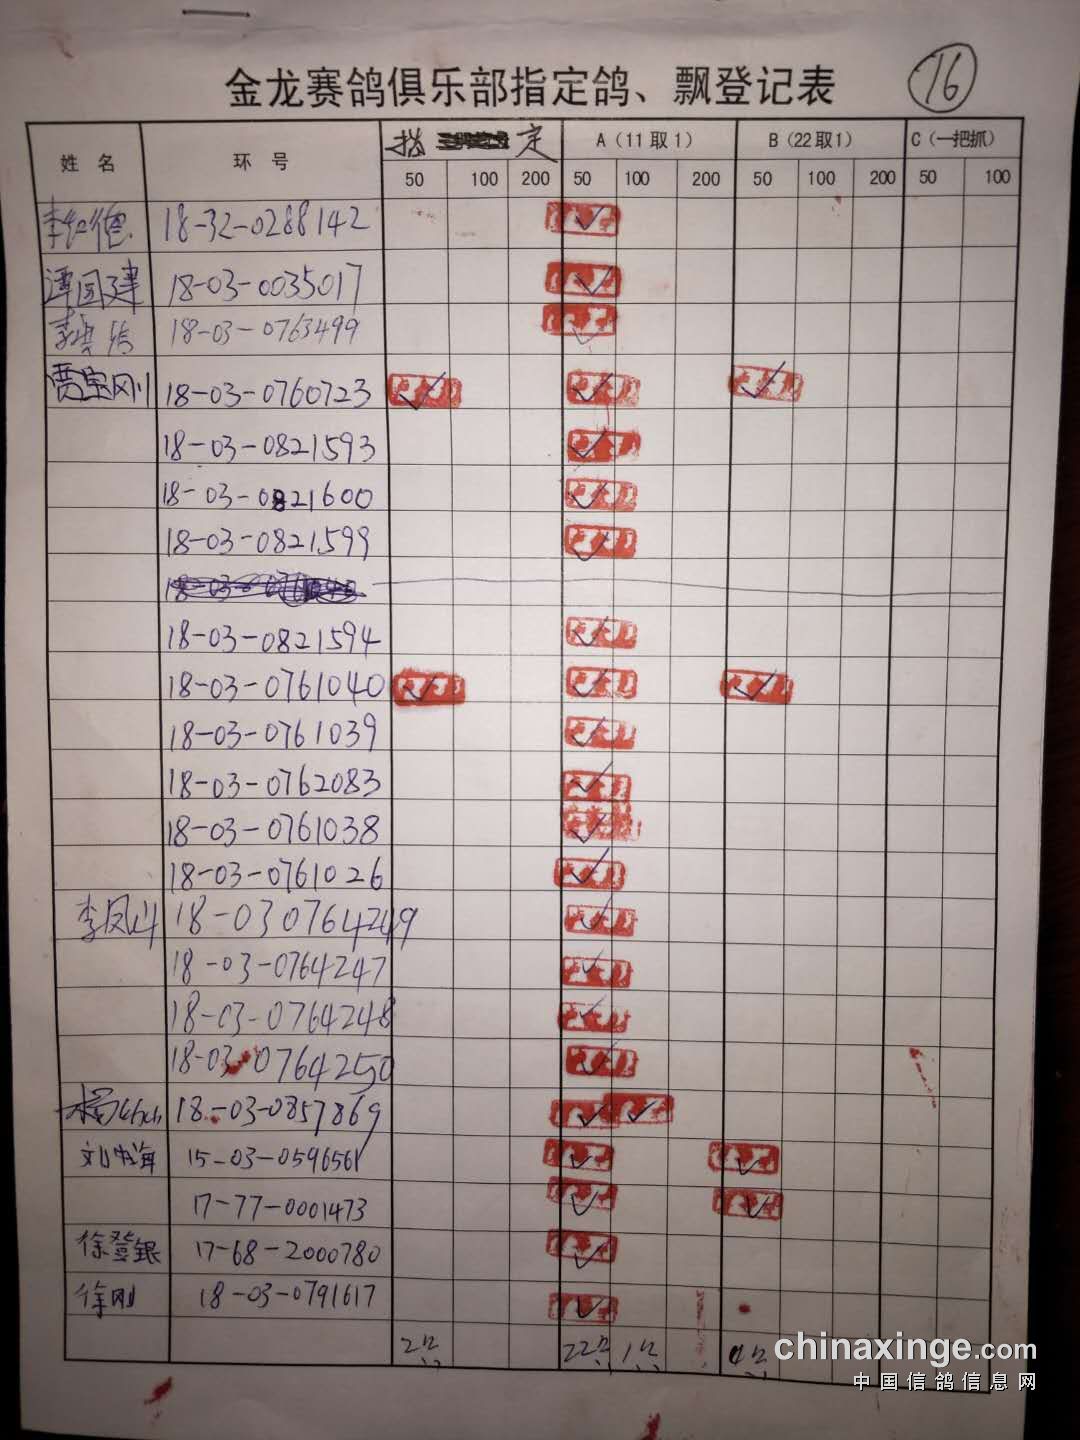 金龙赛鸽俱乐部指定鸽、飘登记表 16
姓 名 环 号 指 定 A(11取1) B(22取1) C(一把抓)
50 100 200 50 100 200 50 100 200 50 100
18-32-0288142
谭国建 18-03-0035017
18-03-0763499
贾宝刚 18-03-0760723
18-03-0821593
18-03-0821600
18-03-0821599
18-03-0821594
18-03-0761040
18-03-0761039
18-03-0762083
18-03-0761038
18-03-0761026
李凤 18-03 0764249
18-03-0764247
18-03-0764248
18-03-0764250
杨 18-03-0857869
刘 海 15-03-0596561
17-77-0001473
徐登银 17-68-2000780
徐刚 18-03-0791617
2 22 1 4
chinaxinge.com
中国信鸽信息网